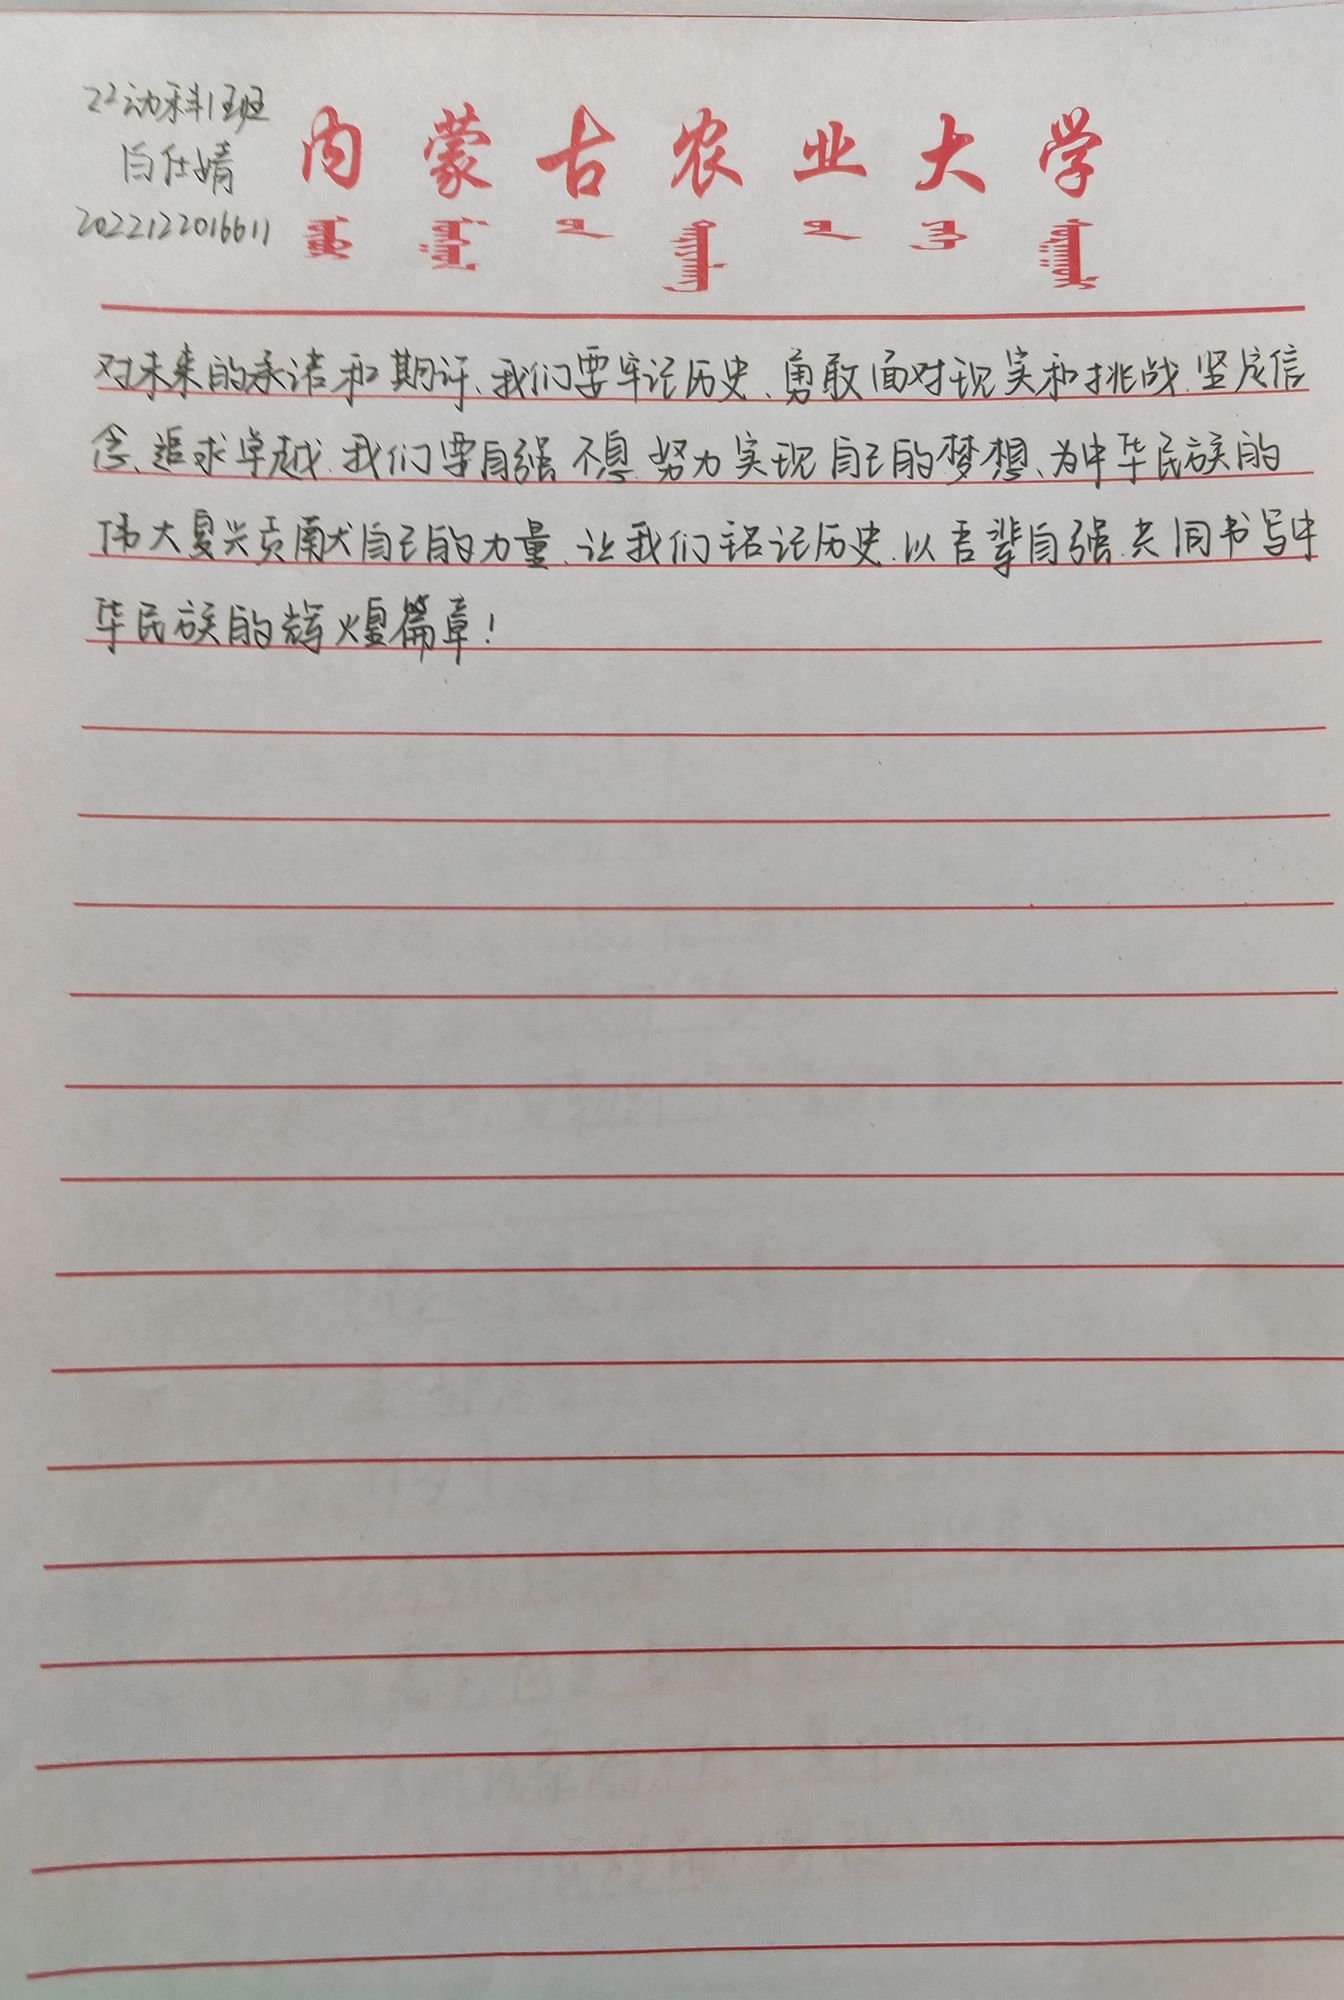 22动科1班
白仕婧
2022122016611
内蒙古农业大学
对未来的承诺和期许、我们要牢记历史、勇敢面对现实和挑战、坚定信
念、追求卓越、我们要自强不息、努力实现自己的梦想、为中华民族的
伟大复兴贡献自己的力量、让我们铭记历史、以吾辈自强、共同书写中
华民族的辉煌篇章！